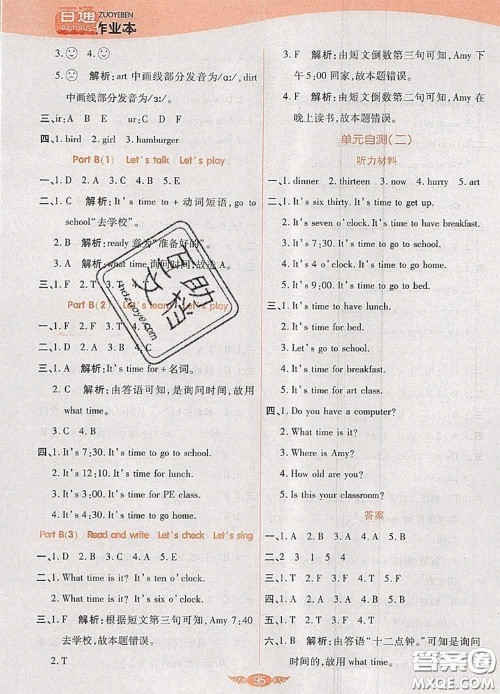 百通
BAITONG
ZUOYEBEN
作业本
3. 4. 解析:art 中画线部分发音为/ɑː/,dirt
中画线部分发音为/ɜː/。
三、ir:A B E ur:C D F
四、1. bird 2. girl 3. hamburger
Part B(1) Let's talk Let's play
一、1. D 2. A 3. C 4. B 5. E
二、1. C 解析:It's time to + 动词短语, go to
school"去学校"。
2. B 解析:ready 意为"准备好的"。
3. A 解析:what time 询问时间,故选 A。
三、1. F 2. T 3. T 4. F
Part B(2) Let's learn Let's play
一、1. D 2. A 3. C 4. B
二、1. A 解析:It's time for + 名词。
2. C 解析:由答语可知,是询问时间,故用
what time。
3. C 4. B
四、1. It's 7:30. It's time to go to school.
2. It's 12:10. It's time for lunch.
3. It's 3:00. It's time for PE class.
4. It's 4:30. It's time to go home.
Part B(3) Read and write Let's check Let's sing
一、1. D 2. C 3. B 4. A
二、1. What time is it? It's ten o'clock.
2. What time is it? It's six o'clock.
三、1. F 解析:根据短文第三句可知 Amy 7:40
去学校,故本题错误。
2. T
3. F 解析:由短文倒数第三句可知,Amy 下
午 5:00 回家,故本题错误。
4. F 解析:由短文倒数第二句可知,Amy 在
晚上读书,故本题错误。
单元自测(二)
听力材料
一、1. dinner 2. thirteen 3. now 4. hurry 5. art
二、1. It's six thirty. It's time to get up.
2. It's seven o'clock. It's time to have breakfast.
3. It's 7:30. It's time to go to school.
4. It's 4 o'clock. It's time to go home.
5. It's 9 o'clock. It's time to go to bed.
三、1. It's time to have lunch.
2. It's time for bed.
3. Let's go to school.
4. It's time for breakfast.
5. It's time for art class.
四、1. Do you have a computer?
2. What time is it?
3. Where is Amy?
4. How old are you?
5. Is this your classroom?
答案
一、1. A 2. B 3. A 4. B 5. A
二、2 3 1 5 4
三、1. T 2. F 3. F 4. T 5. T
四、1. B 2. A 3. A 4. B 5. B
五、1. T 2. F 3. F 4. T 5. T
六、1. B 解析:由答语"十二点钟。"可知是询问
时间的,故用 what time。
95
互助文档
hdzuoye.com
答案圈
MXQE.COM